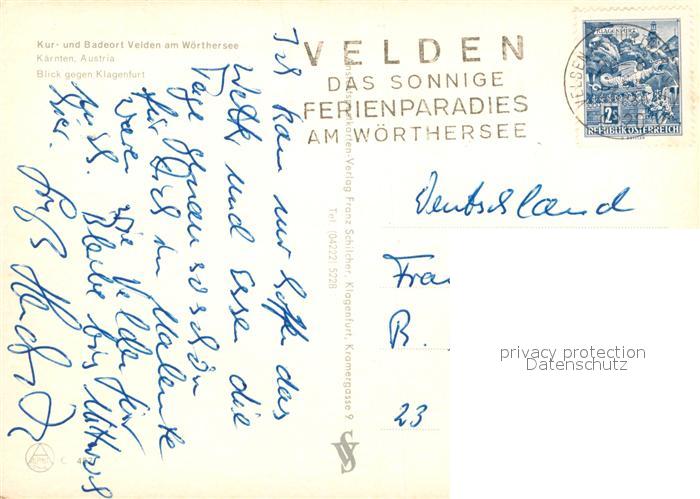 Kur- und Badeort Velden am Wörthersee
Kärnten, Austria
Blick gegen Klagenfurt
VELDEN
DAS SONNIGE
FERIENPARADIES
AM WÖRTHERSEE
KLAGENFURT
VELDEN
2
REPUBLIK ÖSTERREICH
Ich kann nur hoffe das
Wetter und Essen die
Tage genau so schön
für Dich in Malente
waren wie Velder hier
Bleibe bis Mittwoch
hier.
Kunstpostkarten-Verlag Franz Schilcher, Klagenfurt, Kramergasse 9
Tel. (04222) 5228
Deutschland
Frau
B.
23
privacy protection
Datenschutz